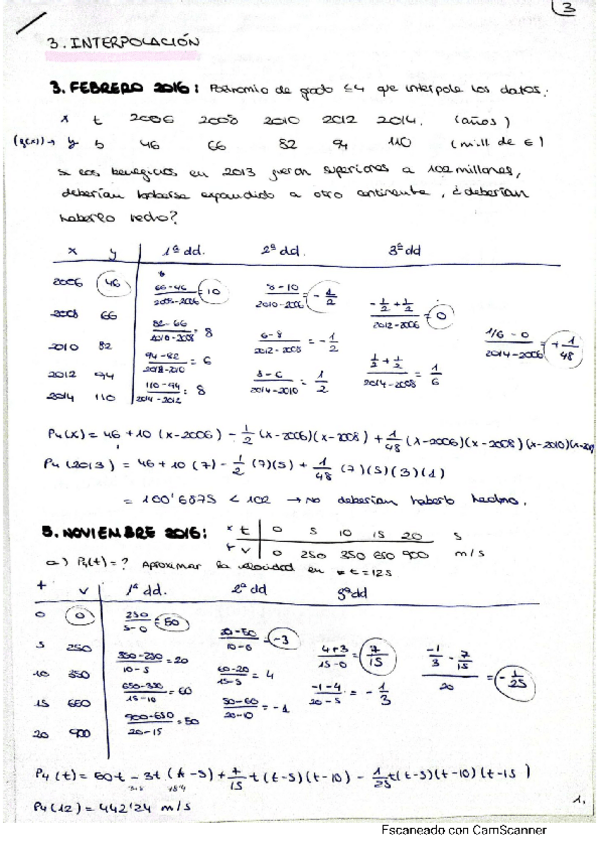 3
3. INTERPOLACIÓN
3. FEBRERO 2016: Polinomio de grado ≤4 que interpole los datos:
x t 2006 2008 2010 2012 2014. (años)
y b 46 66 82 94 110 (mill. de €)
Si los beneficios en 2013 fueron superiores a 102 millones,
deberían haberse expandido a otro continente, ¿deberían
haberlo hecho?
x y 1ª dd. 2ª dd. 3ª dd
2006 46 66-46/2008-2006 = 10 8-10/2010-2006 = -1/2 -1/2+1/2/2012-2006 = 0 1/6-0/2014-2006 = +1/48
2008 66 82-66/2010-2008 = 8 6-8/2012-2008 = -1/2 1/2+1/2/2014-2008 = 1/6
2010 82 94-82/2012-2010 = 6 8-6/2014-2010 = 1/2
2012 94 110-94/2014-2012 = 8
2014 110
P4(x) = 46+10(x-2006) - 1/2 (x-2006)(x-2008) + 1/48 (x-2006)(x-2008)(x-2010)
P4(2013) = 46+10(7) - 1/2 (7)(5) + 1/48 (7)(5)(3)(1)
= 100'6875 < 102 → No deberían haberlo hecho.
5. NOVIEMBRE 2016: x t 0 5 10 15 20 s
v 0 250 350 650 900 m/s
a) P4(t)=? Aproximar la velocidad en t=12s
t v 1ª dd. 2ª dd 3ª dd
0 0 250/5-0 = 50 20-50/10-0 = -3 4+3/15-0 = 7/15 -1/3 - 7/15/20 = -1/25
5 250 350-250/10-5 = 20 60-20/15-5 = 4 -1-4/20-5 = -1/3
10 350 650-350/15-10 = 60 50-60/20-10 = -1
15 650 900-650/20-15 = 50
20 900
P4(t) = 50t - 3t(t-5) + 7/15 t(t-5)(t-10) - 1/25 t(t-5)(t-10)(t-15)
P4(12) = 442'24 m/s
1.
Escaneado con CamScanner